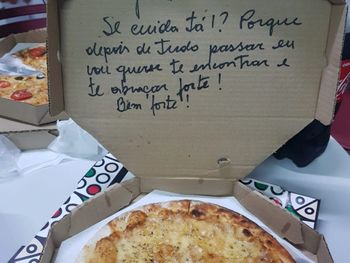 Se cuida tá!? Porque
depois de tudo passar eu
vou querer te encontrar e
te abraçar forte!
Bem forte!!